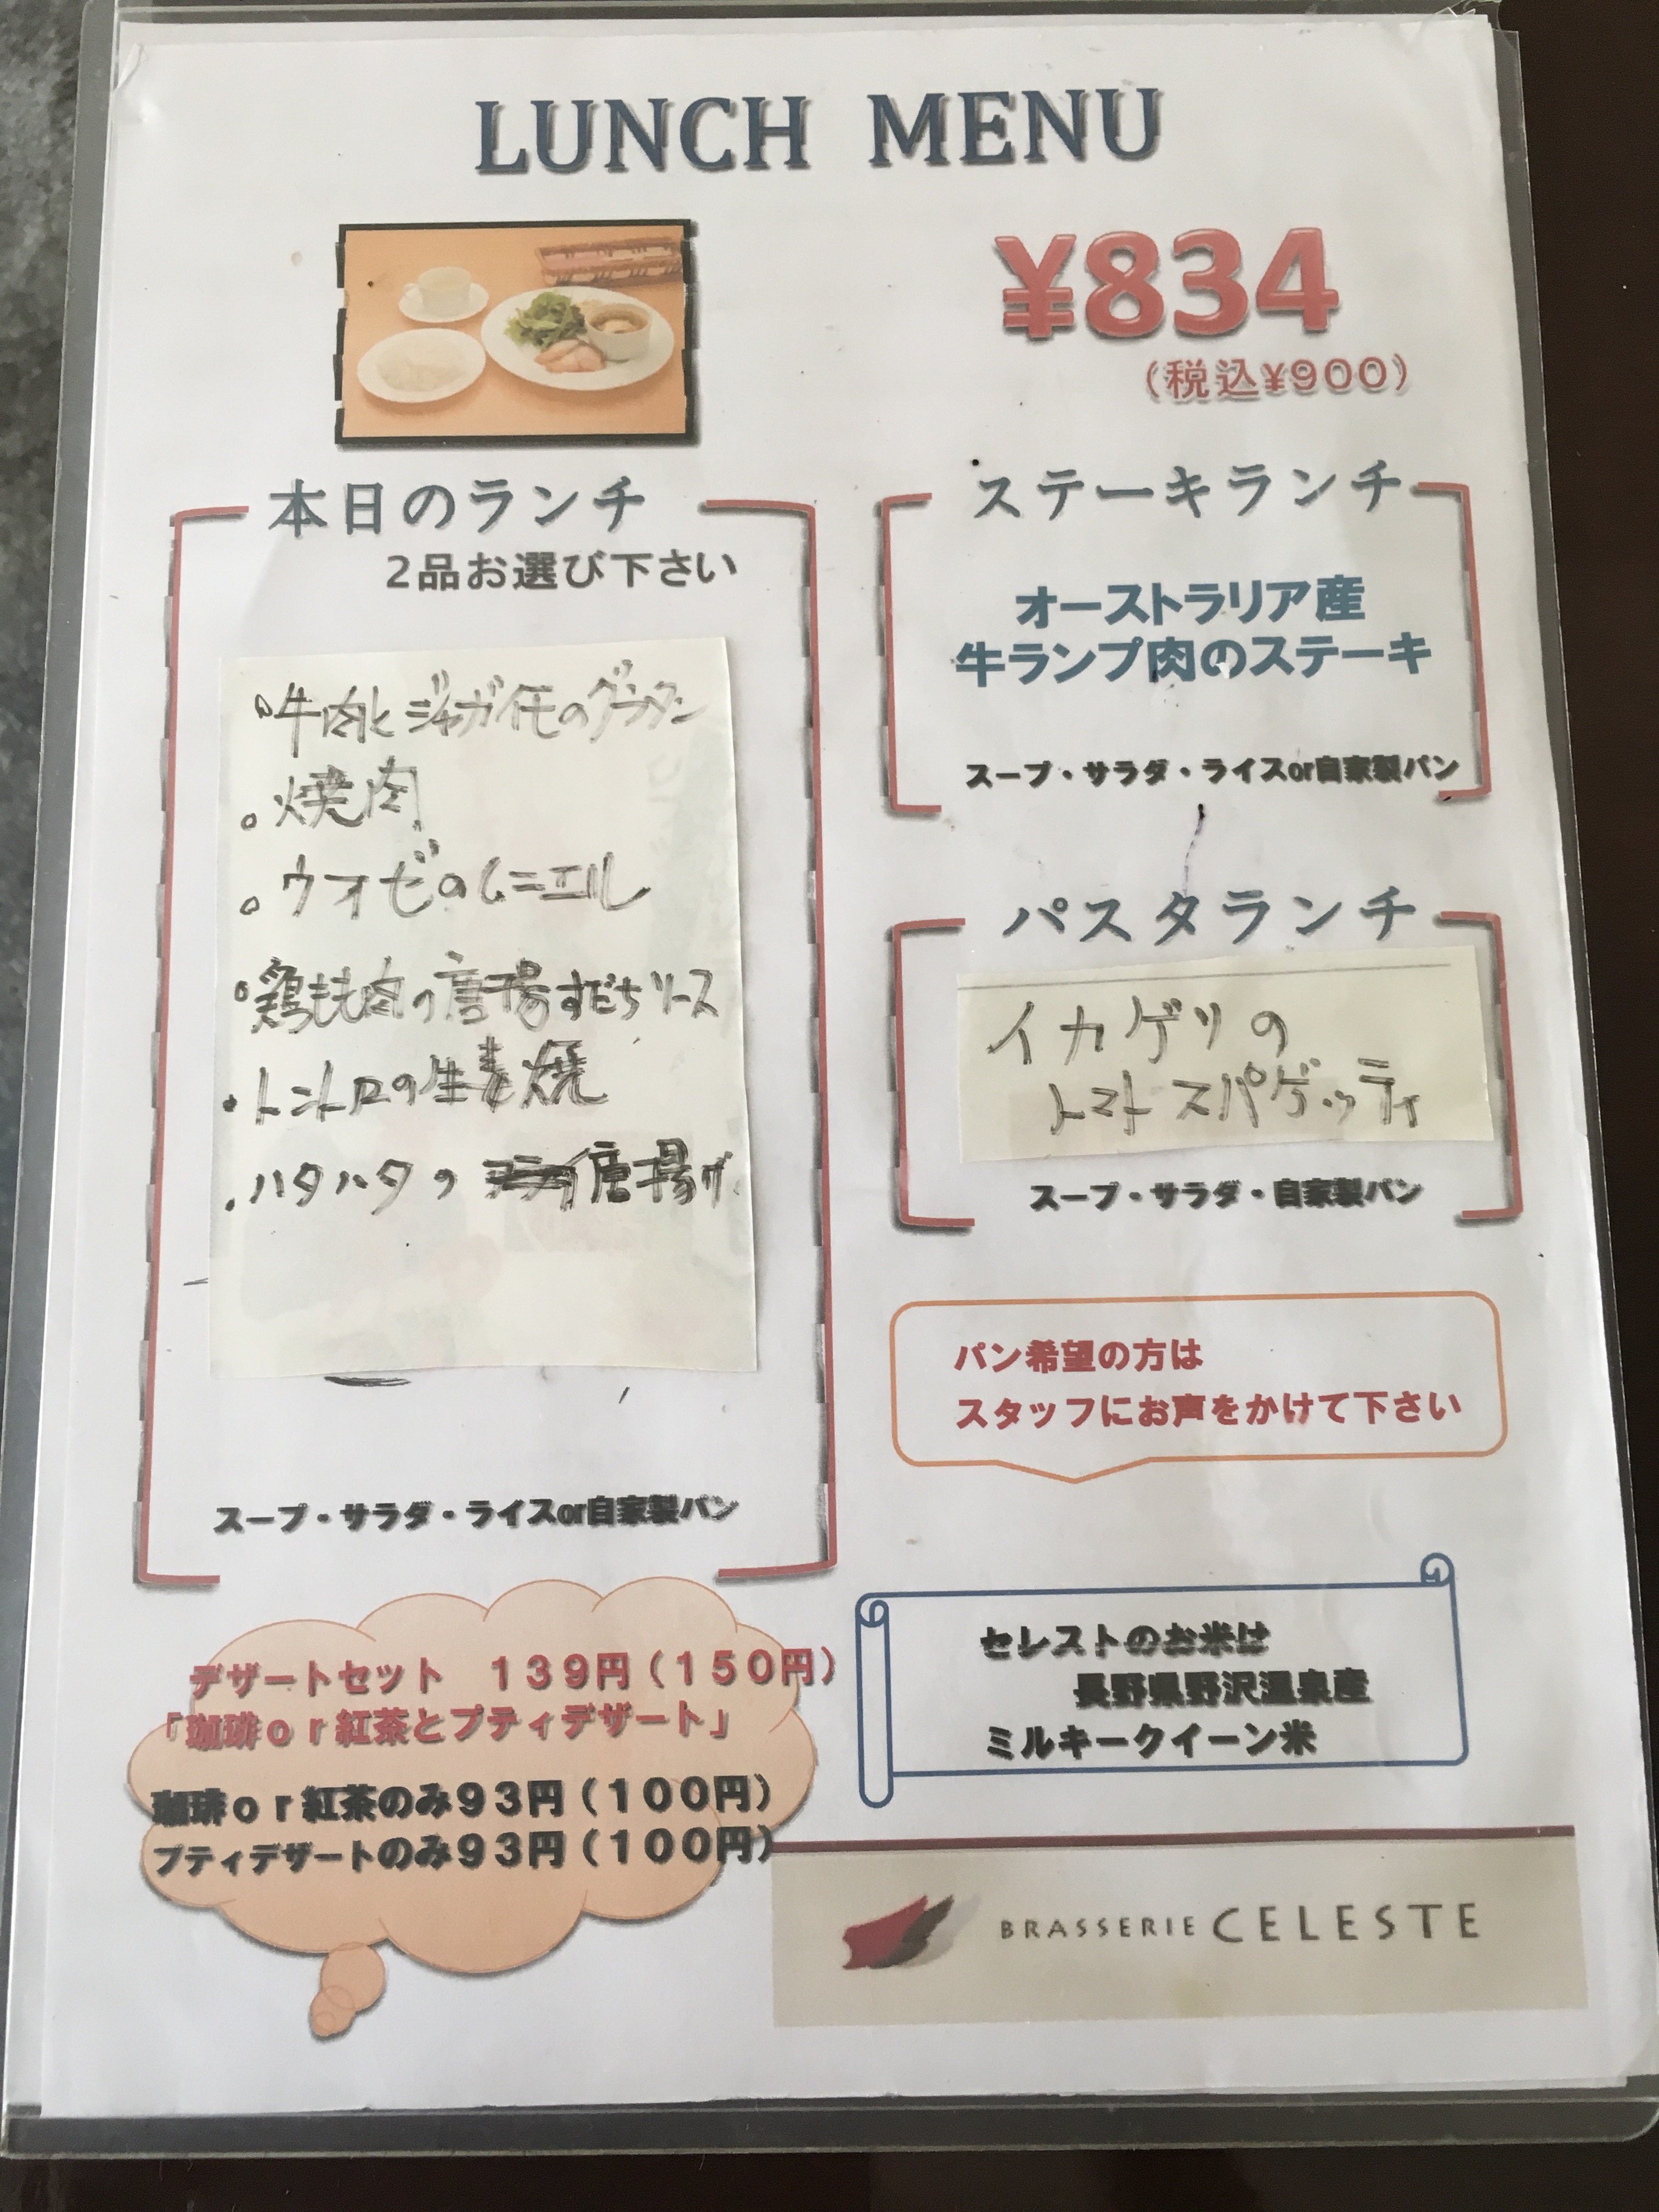 LUNCH MENU
¥834
(税込¥900)
本日のランチ
2品お選び下さい
。牛肉とジャガイモのグラタン
。焼肉
。ウオゼのムニエル
。鶏もも肉の唐揚すだちソース
・トントロの生姜焼
・ハタハタの唐揚げ
スープ・サラダ・ライスor自家製パン
ステーキランチ
オーストラリア産
牛ランプ肉のステーキ
スープ・サラダ・ライスor自家製パン
パスタランチ
イカゲソの
トマトスパゲッティ
スープ・サラダ・自家製パン
パン希望の方は
スタッフにお声をかけて下さい
デザートセット　139円(150円)
「珈琲or紅茶とプティデザート」
珈琲or紅茶のみ93円(100円)
プティデザートのみ93円(100円)
セレストのお米は
長野県野沢温泉産
ミルキークイーン米
BRASSERIE CELESTE